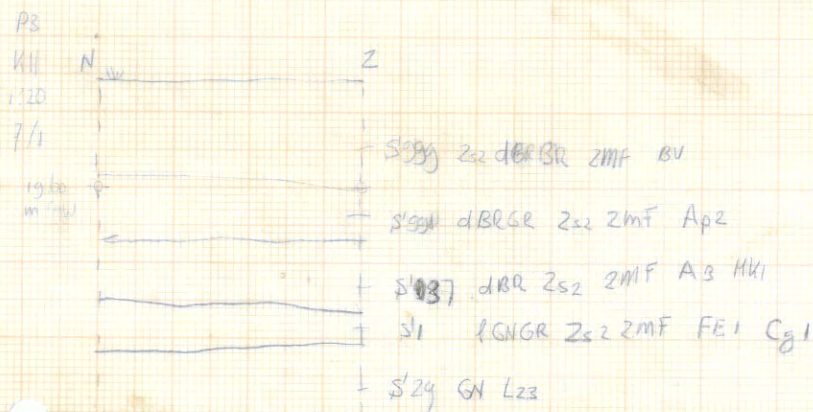 P3
KH
1:20
7/1
N Z
S'999 Zs2 dBRBR ZMF BV
S'998 dBRGR Zs2 ZMF Ap2
S'037 dBR Zs2 ZMF AB HK1
S'1 lGNGR Zs2 ZMF FE1 Cg1
S'29 GN Lz3